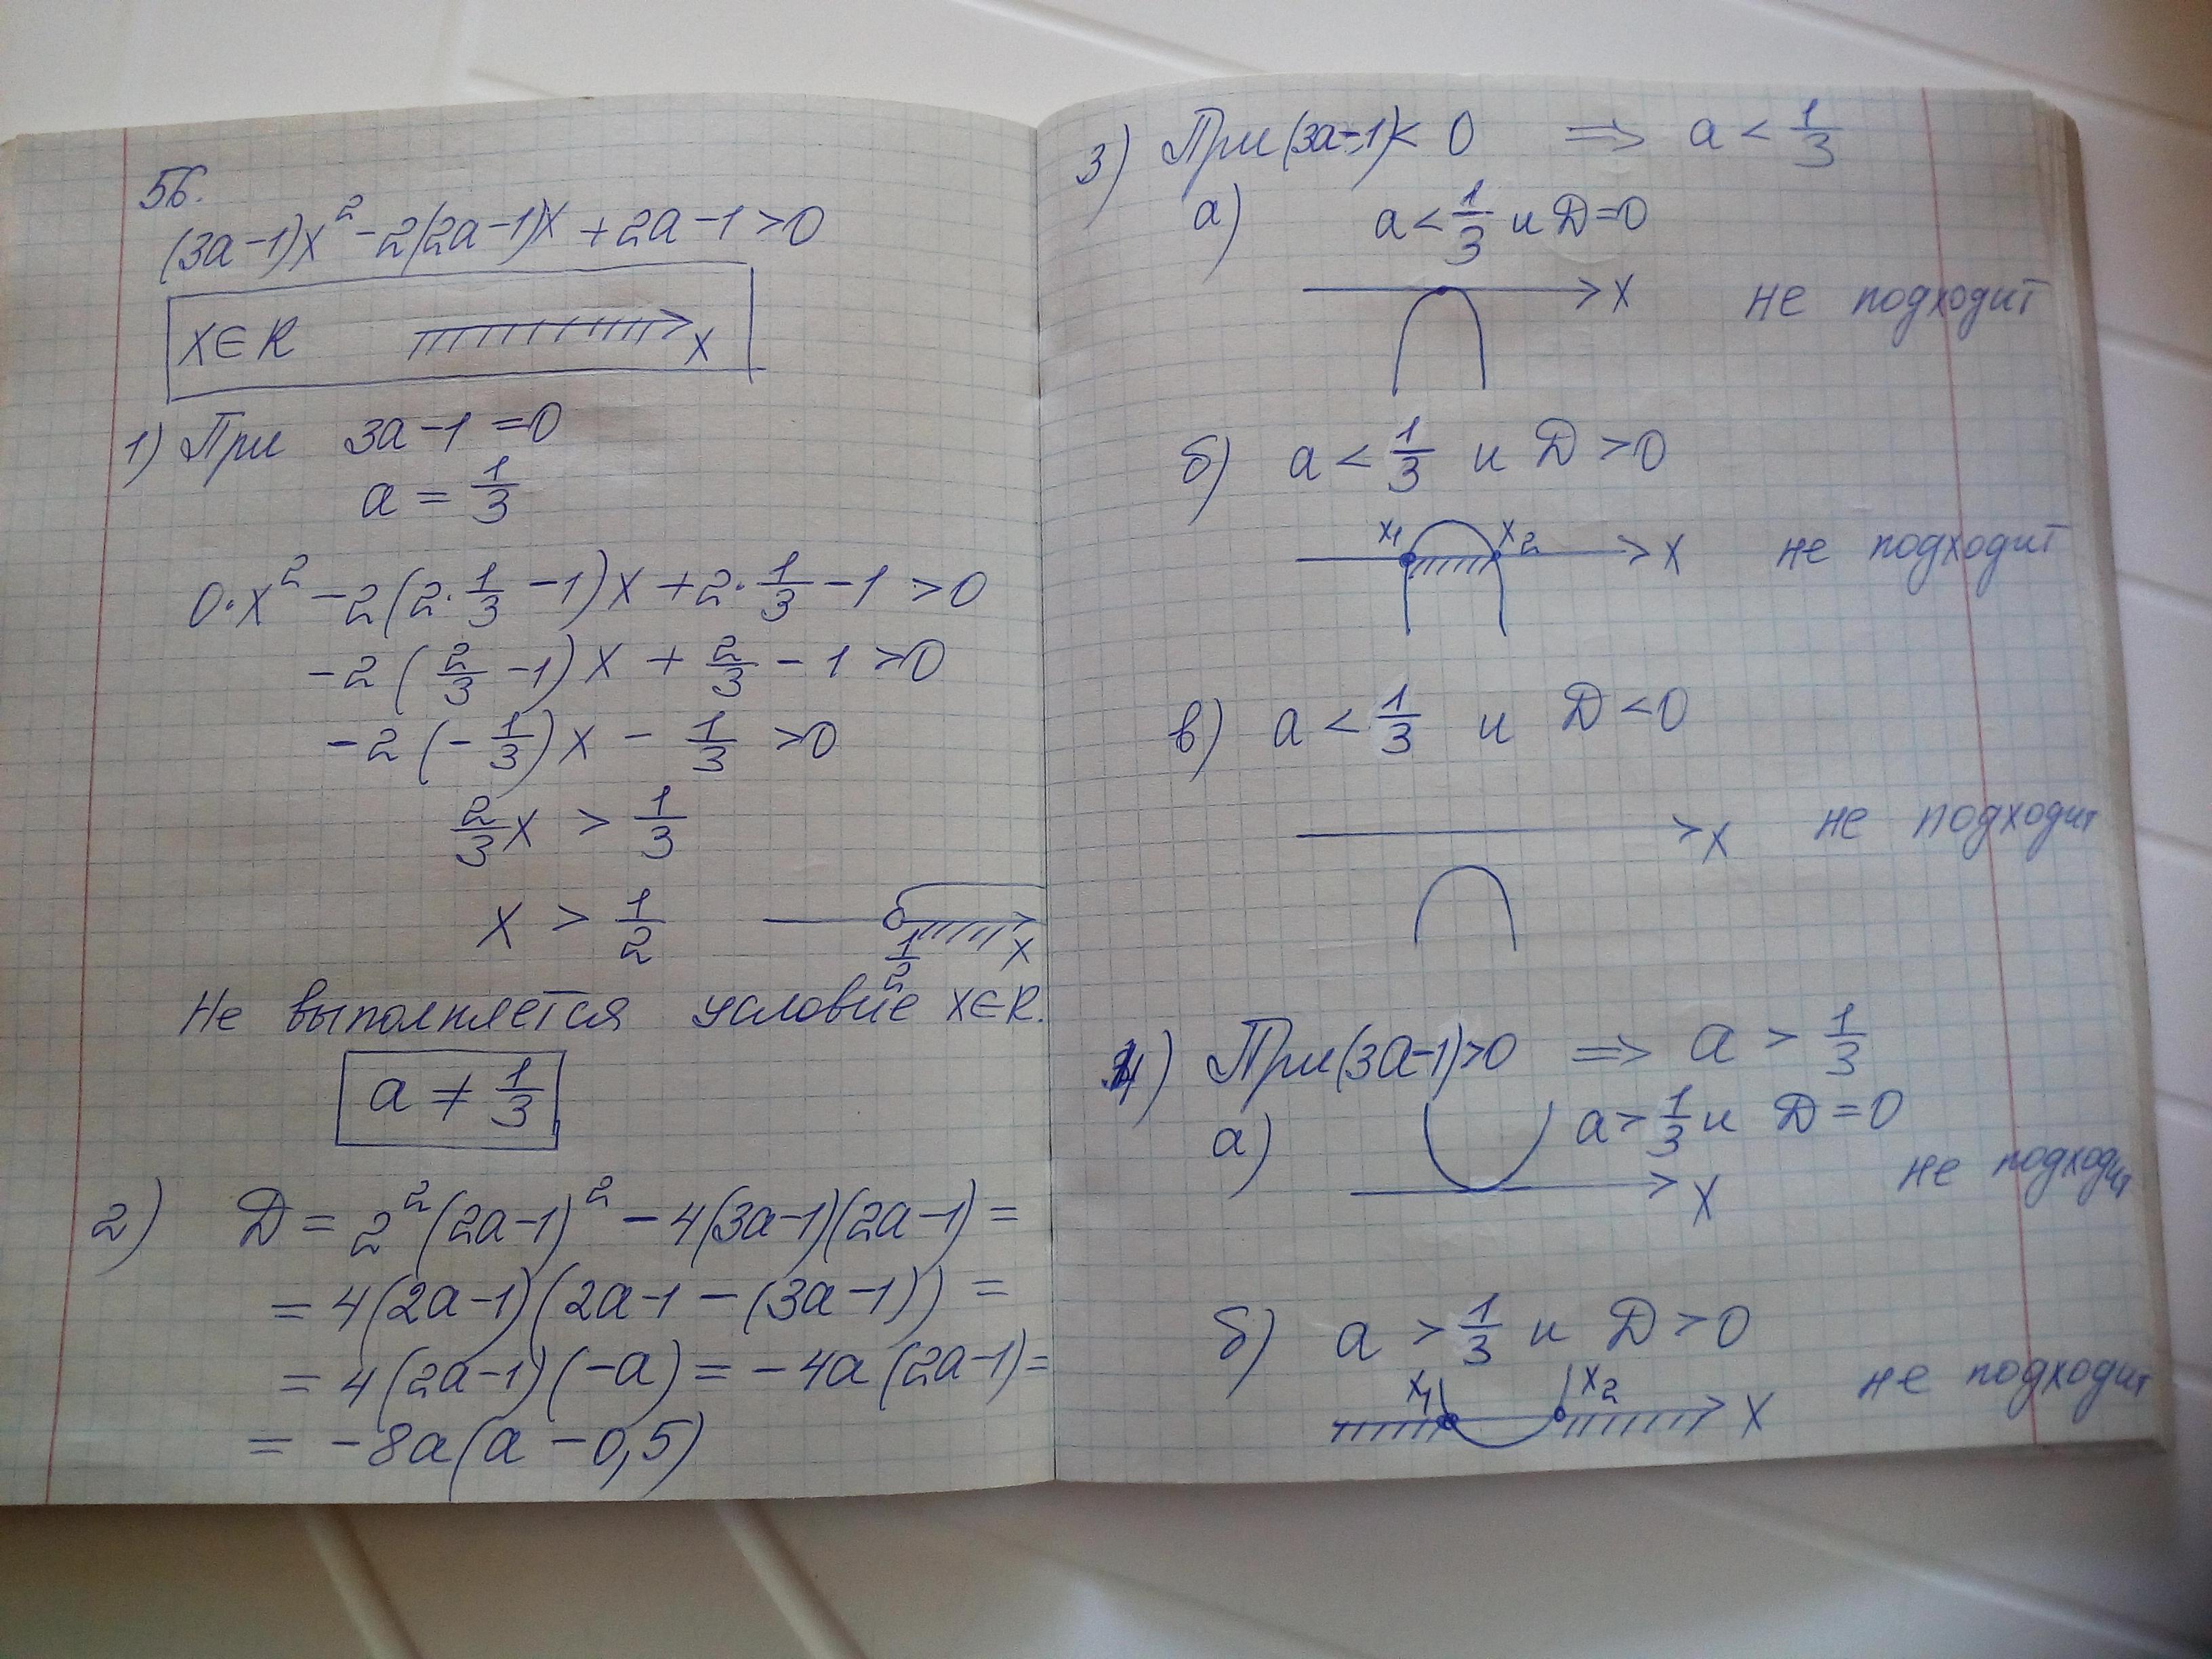 56.
(3a-1)x² - 2(2a-1)x + 2a-1 > 0
x∈R x
1) При 3a-1 = 0
a = 1/3
0·x² - 2(2·1/3 - 1)x + 2·1/3 - 1 > 0
-2(2/3 - 1)x + 2/3 - 1 > 0
-2(-1/3)x - 1/3 > 0
2/3x > 1/3
x > 1/2 1/2 x
Не выполняется условие x∈R.
a ≠ 1/3
2) D = 2²(2a-1)² - 4(3a-1)(2a-1) =
= 4(2a-1)(2a-1-(3a-1)) =
= 4(2a-1)(-a) = -4a(2a-1) =
= -8a(a-0,5)
3) При (3a-1) < 0 => a < 1/3
а) a < 1/3 и D=0
x не подходит
б) a < 1/3 и D > 0
x₁ x₂ x не подходит
в) a < 1/3 и D < 0
x не подходит
4) При (3a-1) > 0 => a > 1/3
а) a > 1/3 и D = 0
x не подходит
б) a > 1/3 и D > 0
x₁ x₂ x не подходит